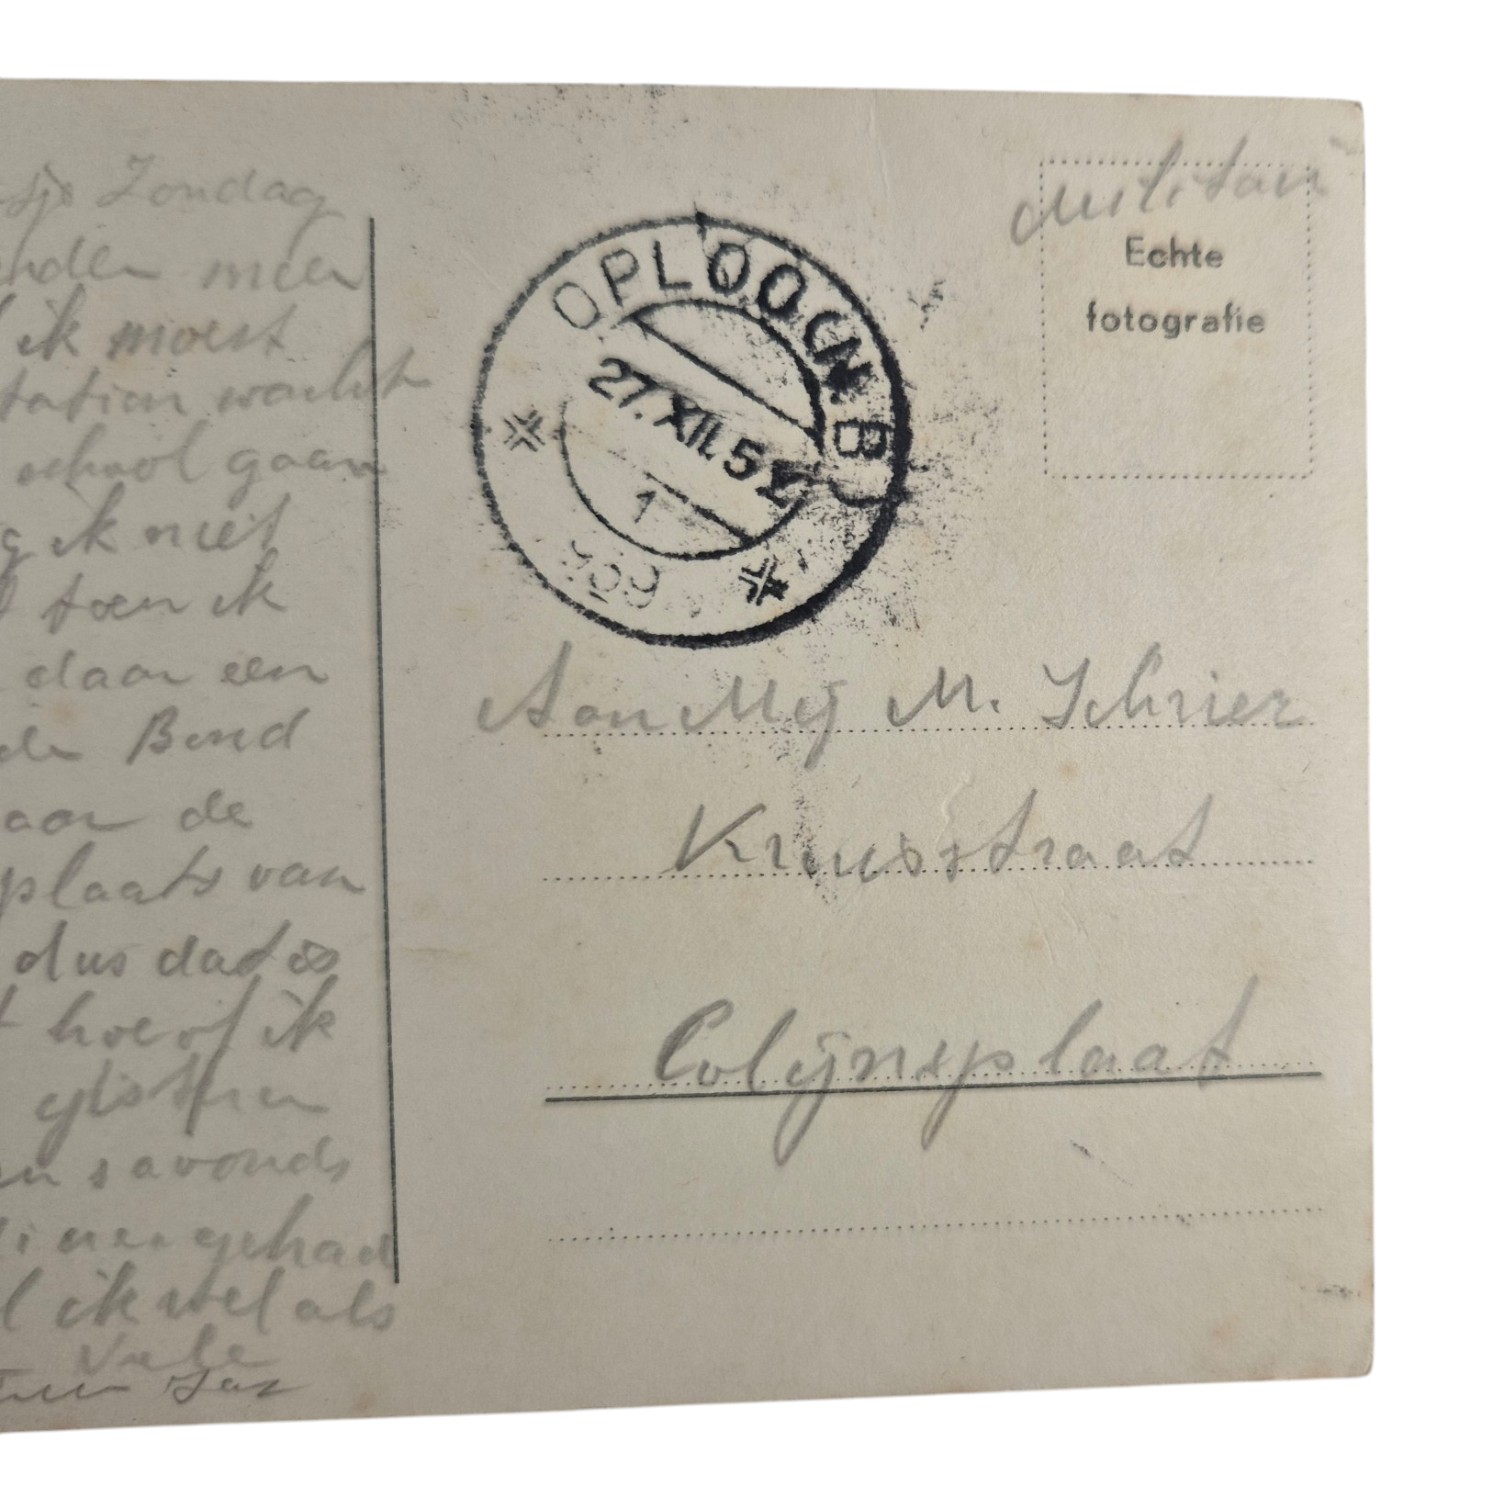 Zondag
meer
ik moest
tation wacht
school gaan
ik niet
toen ik
daar een
de Bond
aar de
plaats van
dus dat is
hoef ik
s avonds
gehad
ik wel als
Vele
Militair
Echte
fotografie
OPLOO (N B)
27.XII.52
1
Aan Mej M. Schrier
Kruisstraat
Colijnsplaat